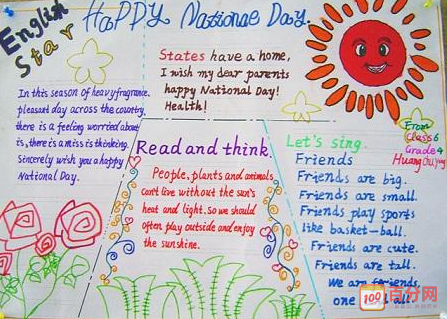 English Star
HAPPY National Day.
States have a home,
I wish my dear parents
happy National Day!
Health!
In this season of heavy fragrance,
pleasant day across the country,
there is a feeling worried about
is, there is a miss is thinking.
Sincerely wish you a happy
National Day.
Read and think
People, plants and animals
can't live without the sun's
heat and light. So we should
often play outside and enjoy
the sunshine.
Let's sing
Friends
Friends are big.
Friends are small.
Friends play sports
like basket-ball.
Friends are cute.
Friends are tall.
We are friends,
one all.
From
Class 6
Grade 4
Huang
100 百分网